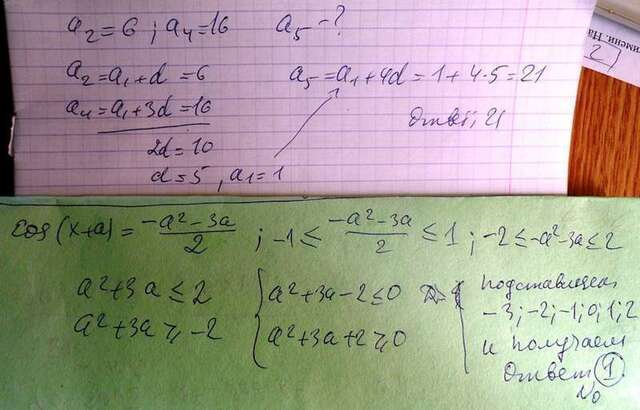 a₂=6 ; a₄=16 a₅ -?
a₂=a₁+d=6 a₅=a₁+4d=1+4·5=21
a₄=a₁+3d=16
Ответ; 21
2d=10
d=5, a₁=1
имени. На
2)
cos(x+a)= (-a²-3a)/2 ; -1≤ (-a²-3a)/2 ≤1 ; -2≤-a²-3a≤2
a²+3a≤2 { a²+3a-2≤0
a²+3a≥-2 { a²+3a+2≥0
подставляем
-3;-2;-1;0;1;2
и получаем
Ответ 1
No